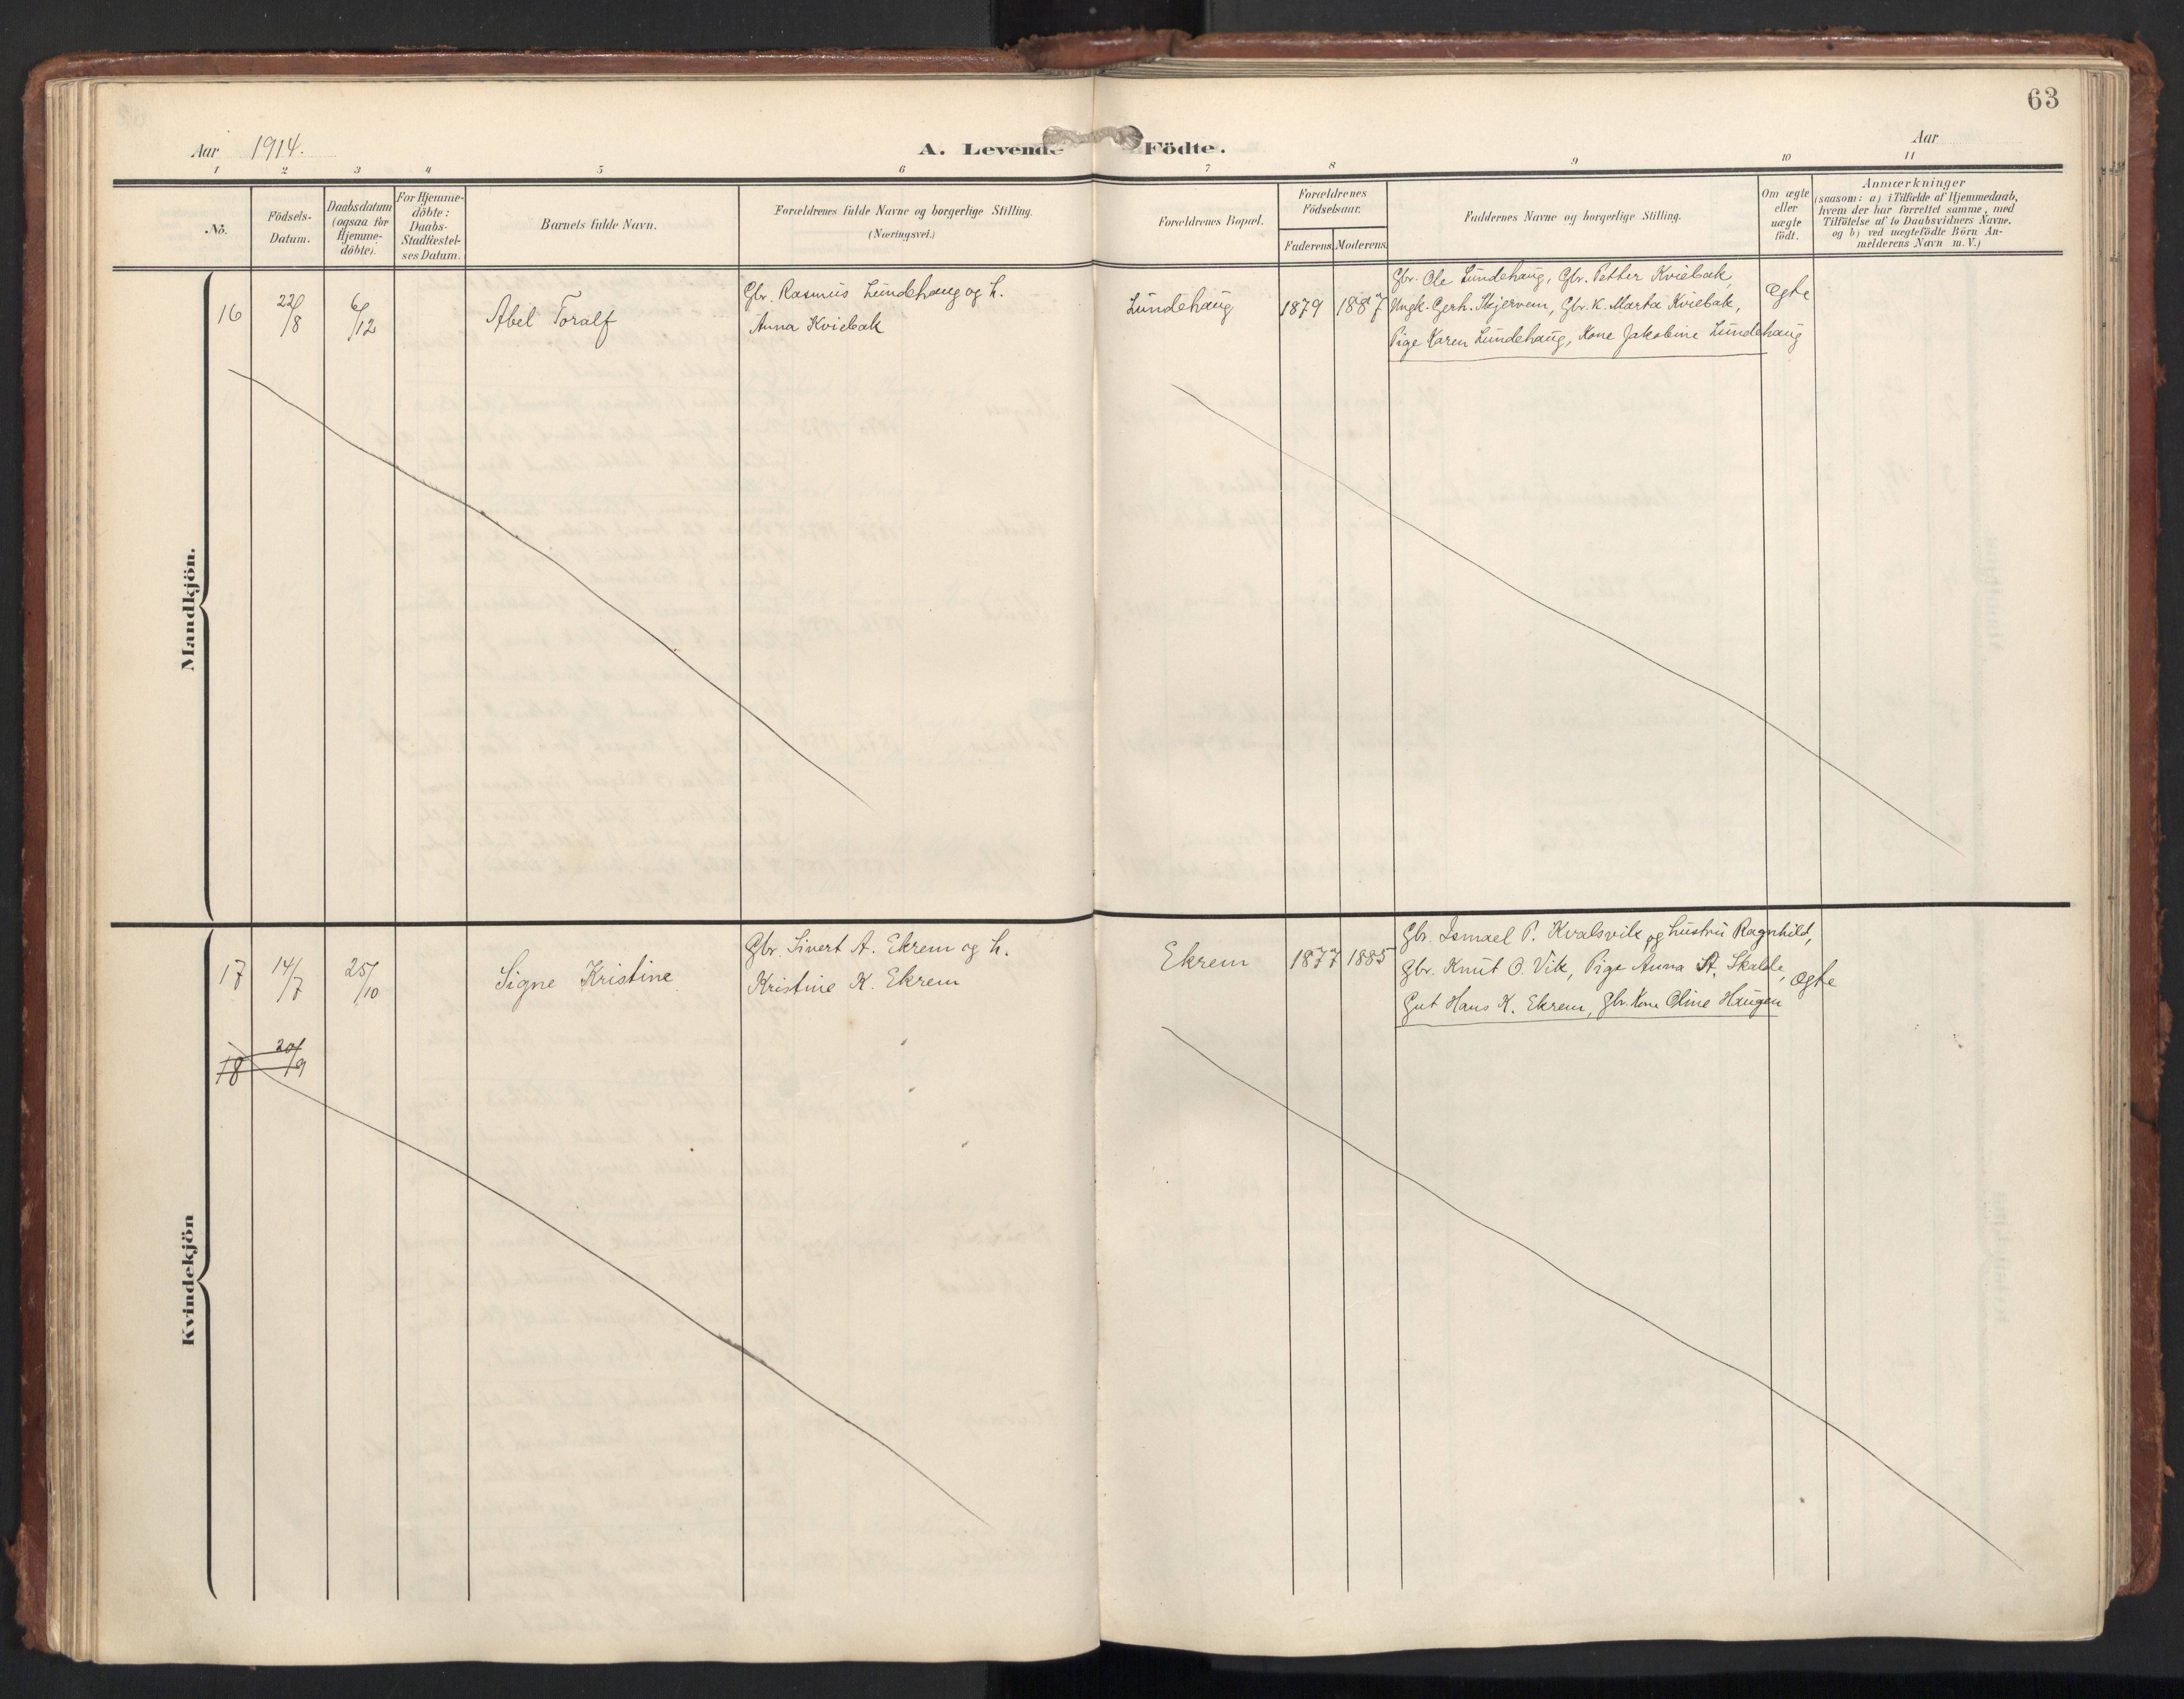 63
Aar 1914.
A. Levende Födte.
Aar
1 2 3 4 5 6 7 8 9 10 11
No.
Födsels-
Datum.
Daabsdatum
(ogsaa for
Hjemme-
döbte).
For Hjemme-
döbte:
Daabs-
Stadfæstel-
ses Datum.
Barnets fulde Navn.
Forældrenes fulde Navne og borgerlige Stilling.
(Næringsvei.)
Forældrenes Bopæl.
Forældrenes
Födselsaar.
Faderens. Moderens.
Faddernes Navne og borgerlige Stilling.
Om ægte
eller
uægte
födt.
Anmærkninger
(saasom: a) i Tilfælde af Hjemmedaab,
hvem der har forrettet samme, med
Tilföielse af to Daabsvidners Navne.
og b) ved uægtefödte Börn An-
melderens Navn m. V.)
Mandkjön.
16 22/8 6/12 Abel Toralf
Gbr. Rasmus Lundehaug og h.
Anna Kviebak
Lundehaug 1879 1887
Gbr. Ole Lundehaug, Gbr. Petter Kviebak,
Ungk. Gerh. Skjervem, Gbr. K. Marta Kviebak,
Pige Karen Lundehaug, Kone Jakobine Lundehaug
Ægte
Kvindekjön
17 14/7 25/10 Signe Kristine
Gbr. Sivert A. Ekrem og h.
Kristine K. Ekrem
Ekrem 1877 1885
Gbr. Ismael P. Kvalsvik og hustru Ragnhild,
Gbr. Knut O. Vik, Pige Anna A. Skalde,
Gut Hans K. Ekrem, Gbr. Kone Oline Haugen
Ægte
18 20/9